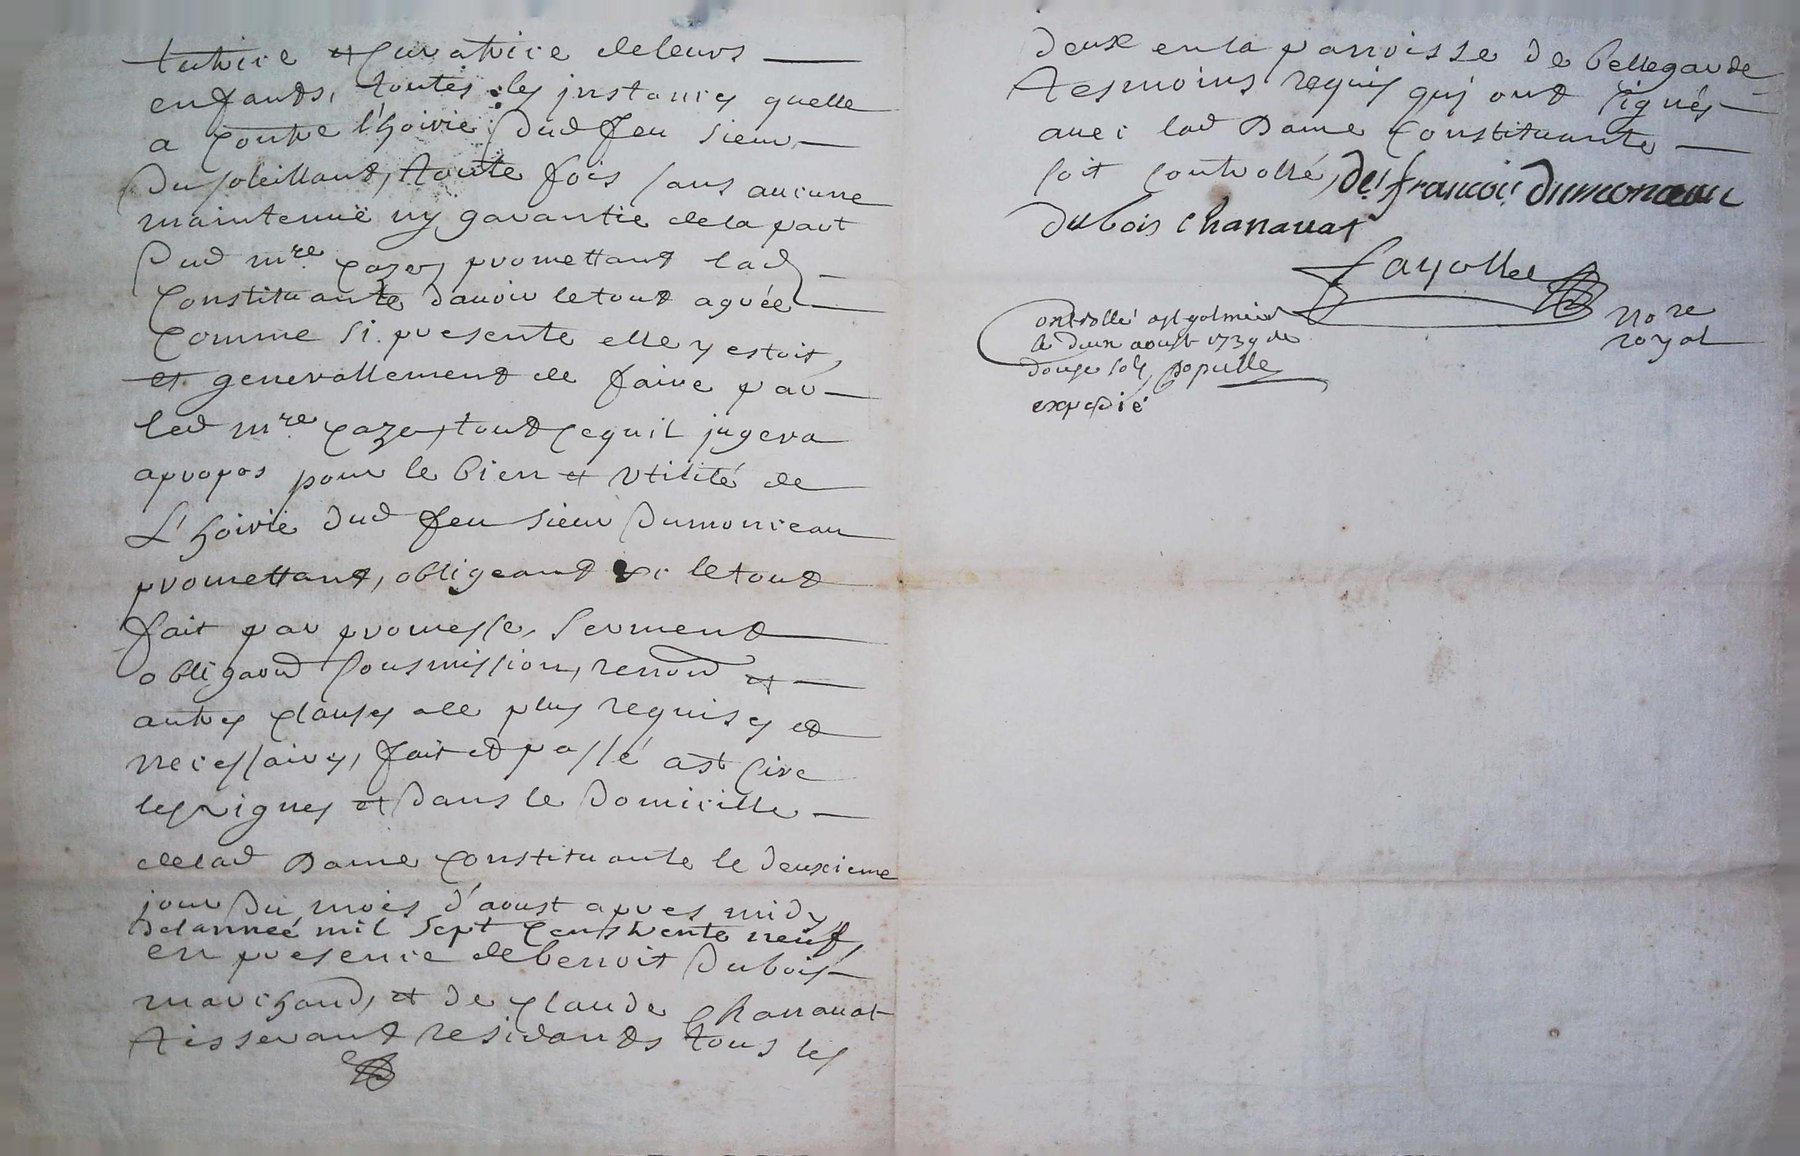 tutrice et Curatrice de leurs
enfants, toutes les instances quelle
a Contre l'hoirie dud feu sieur
Dusoleillant, toute fois sans aucune
maintenuë ny garantie de la part
Dud mre Cazes, promettant lad
Constituante d'avoir le tout agrée
Comme si presente elle y estoit,
et generallement de faire par
led mre Caze, tout Cequil jugera
apropos pour le bien et utilité de
L'hoirie dud feu sieur Dumonceau
promettant, obligeant &c le tout
fait par promesse, serment
obligaon sousmission, renonon et
autres Clauses de plus requises et
necessaires, fait et passé a st Cire
les Vignes et dans le Domicille
delad Dame Constituante le deuxieme
jour Du mois d'aoust apres midy
De lanneé mil Sept Cens trente neuf,
en presence de benoit Dubois
marchand, et de Claude Chanauat
tisserant residants tous les
deux en la parroisse de bellegarde
tesmoins requis qui ont signés
avec lad Dame Constituante
soit Controllé, De françoi Dumonceau
Dubois Chanauat
fayolle
Nore
royal
Controllé a st galmier
le deux aoust 1739 re
douze sols, populle
expedié